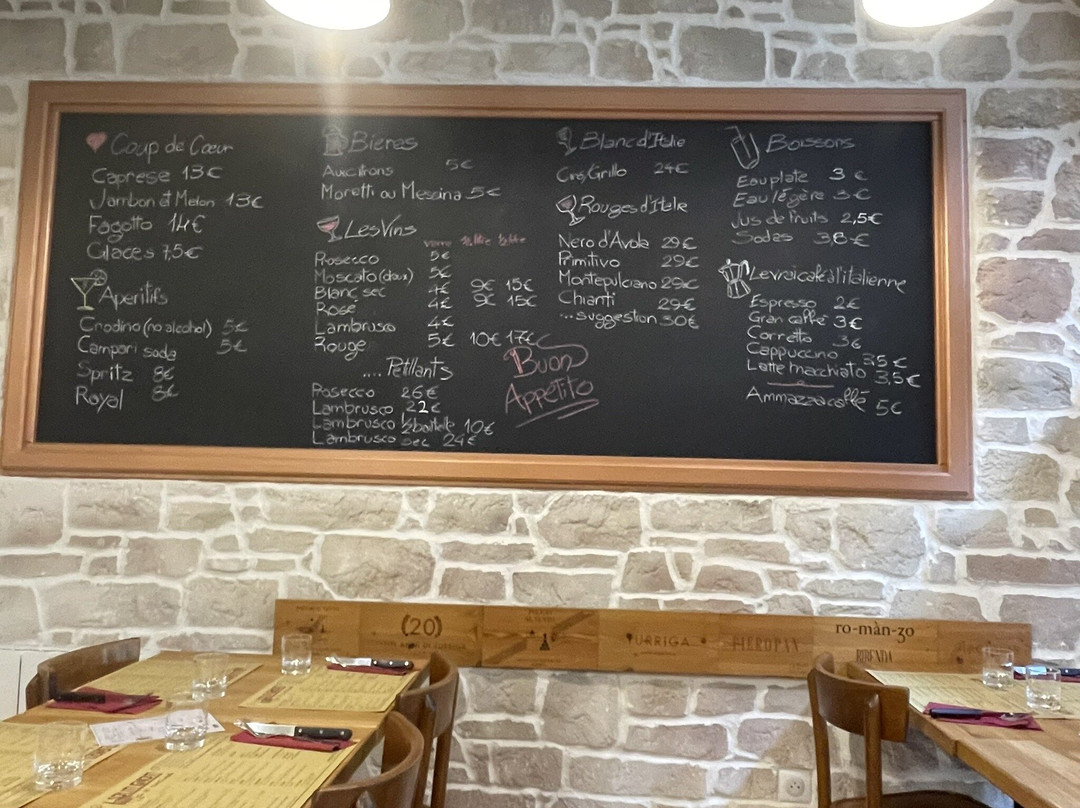 Coup de Cœur
Caprese 13€
Jambon et Melon 13€
Fagotto 14€
Glaces 7,5€
Aperitifs
Crodino (no alcohol) 5€
Campari soda 5€
Spritz 8€
Royal 8€
Bieres
5€
Moretti ou Messina 5€
Les Vins
verre
Prosecco 5€
Moscato (doux) 5€
Blanc sec 4€ 9€ 15€
Rosé 4€ 9€ 15€
Lambrusco 4€
Rouge 5€ 10€ 17€
.... Petillants
Prosecco 26€
Lambrusco 22€
Lambrusco 1/2 bouteille 10€
Lambrusco sec 24€
Buon
Appetito
Blanc d'Italie
Ciro, Grillo 24€
Rouges d'Italie
Nero d'Avola 29€
Primitivo 29€
Montepulciano 29€
Chianti 29€
...suggestion 30€
Boissons
Eau plate 3€
Eau légère 3€
Jus de fruits 2,5€
Sodas 3,8€
Le vrai café à l'italienne
Espresso 2€
Gran caffé 3€
Corretto 3€
Cappuccino 3,5€
Latte macchiato 3,5€
Ammazzacaffé 5€
(20)
TURRIGA
PIEROPAN
ro-màn-zo
BIBENDA